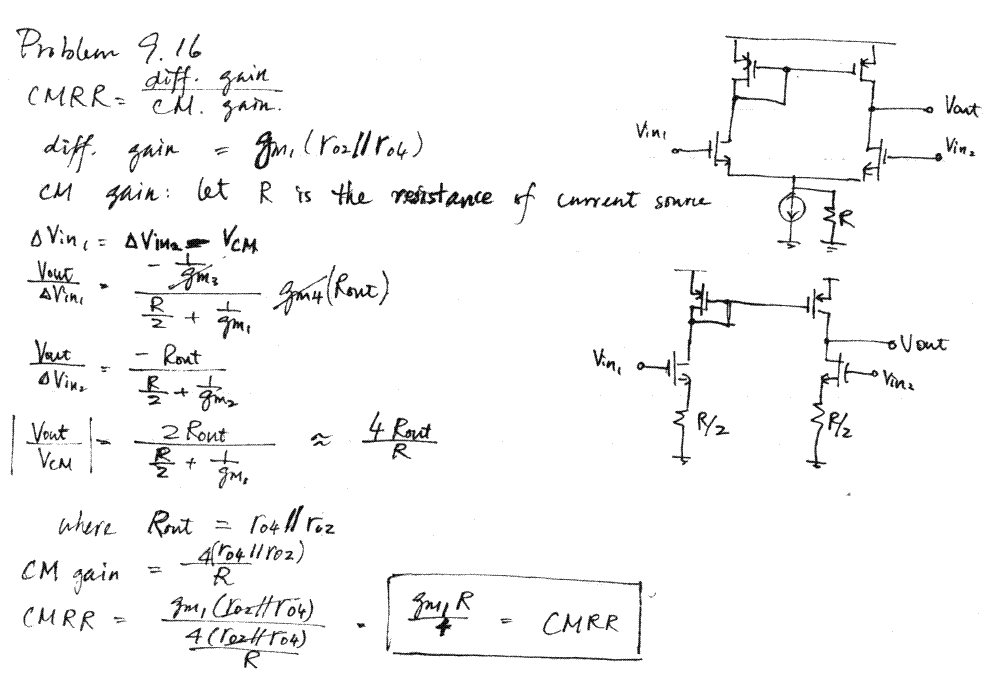 Problem 9.16
CMRR = diff. gain / CM. gain.
diff. gain = gm1 (ro2 // ro4)
CM gain: let R is the resistance of current source
ΔVin1 = ΔVin2 = VCM
Vout / ΔVin1 = - (1/gm3) / (R/2 + 1/gm1) gm4 (Rout)
Vout / ΔVin2 = - Rout / (R/2 + 1/gm2)
| Vout / VCM | = 2 Rout / (R/2 + 1/gm1) ≈ 4 Rout / R
where Rout = ro4 // ro2
CM gain = 4(ro4 // ro2) / R
CMRR = gm1 (ro2 // ro4) / (4 (ro2 // ro4) / R) = gm1 R / 4 = CMRR
Vin1
Vout
Vin2
R
Vin1
Vout
Vin2
R/2
R/2